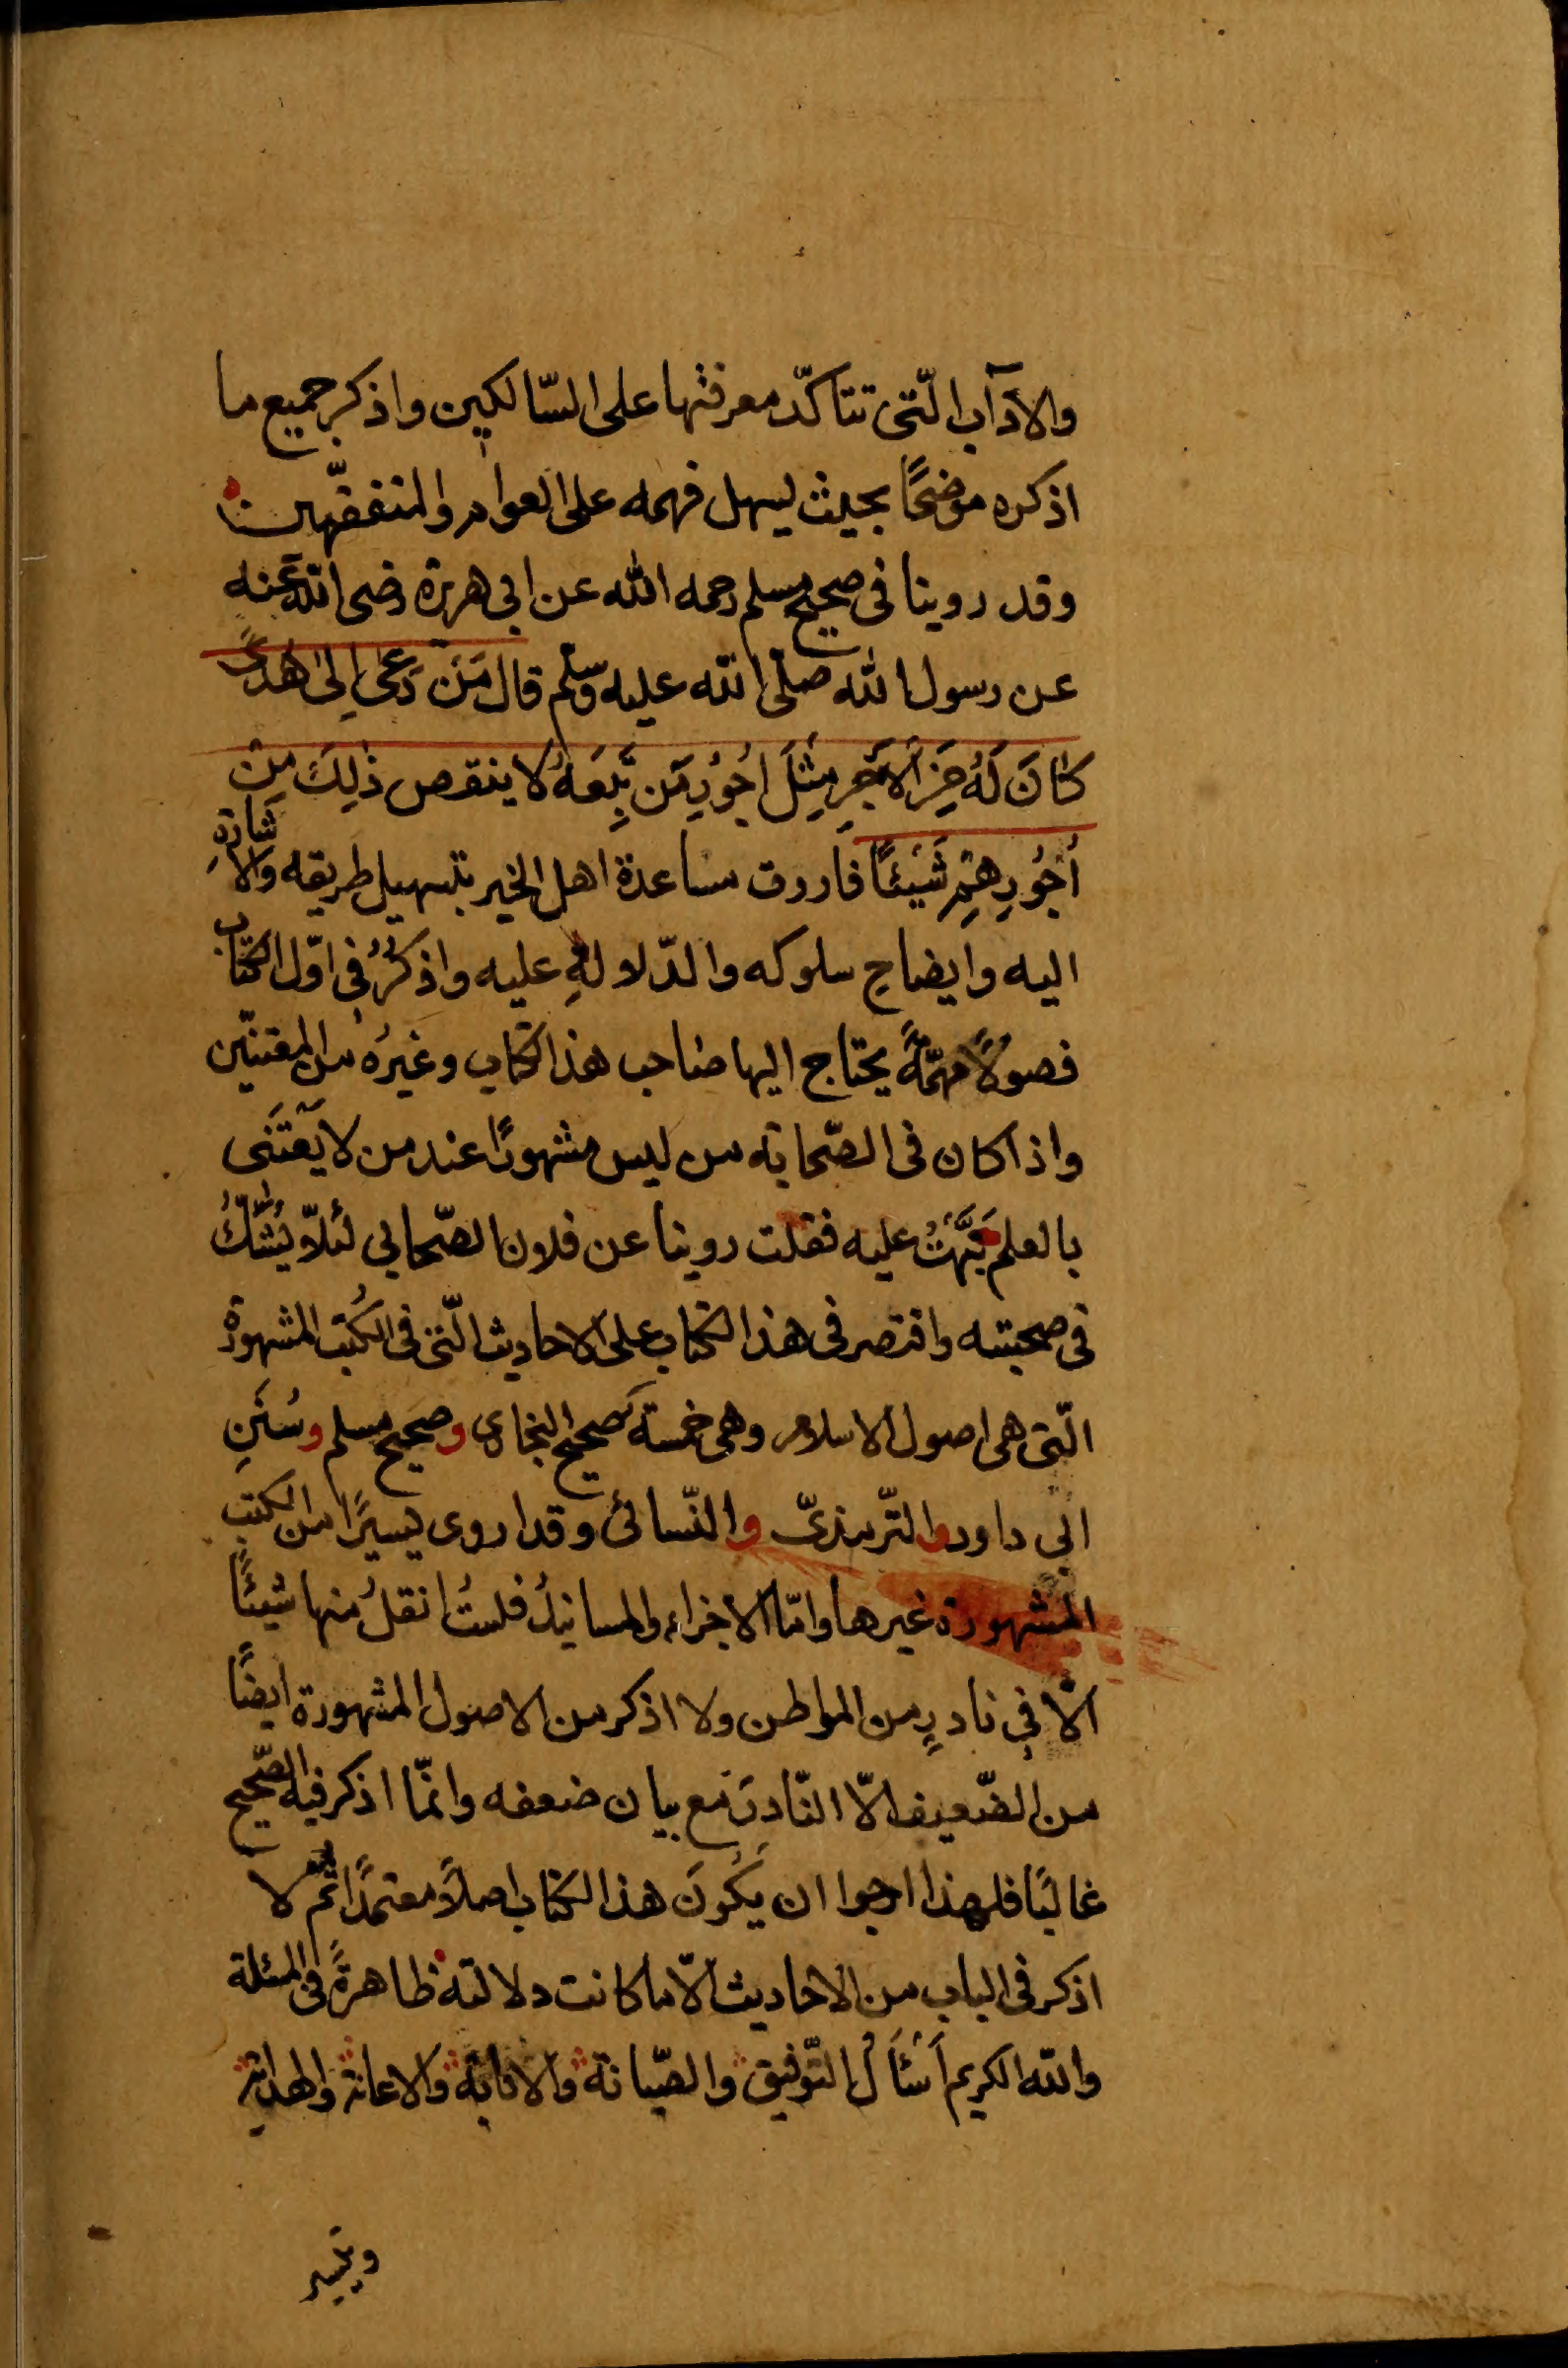 والآداب الّتى تتاكّد معرفتها على السّالكين واذكر جميع ما
اذكره موضحًا بحيث ليسهل فهمه على العوام والمتفقّهين
وقد روينا فى صحيح مسلم رحمه الله عن ابى هريرة رضى الله عنه
عن رسول الله صلّى الله عليه وسلّم قال مَن دَعىٰ اِلىٰ هُدىً
كانَ لَهُ مِنَ الاَجرِ مِثلَ اُجُورِ مَن تَبِعَهُ لا ينقص ذٰلِكَ مِن
اُجُورِهِم شَيئًا فاردت مساعدة اهل الخير بتسهيل طريقه والاشارة
اليه وايضاحِ سلوكه والدّلالةِ عليه واذكرُ فى اوّل الكتاب
فصولاً مهمّةً يحتاج اليها صاحب هذا الكتاب وغيرُه من المعتنين
واذا كان فى الصّحابة من ليس مشهورًا عند من لا يَعتَنى
بالعلم نَبَّهتُ عليه فقلت روينا عن فلان الصّحابى لئلاّ يُشَكُّ
فى صحبته واقتصر فى هذا الكتاب على الاحاديث الّتى فى الكُتب المشهورة
الّتى هى اصول الاسلام وهى خمسة صحيح البخارى وصحيح مسلم وسُنَنِ
ابى داود والتّرمذىّ والنّسائى وقد اروى يسيرًا من الكتب
المشهورة غيرها وامّا الاجزاء والمسانيدُ فلستُ انقلُ منها شيئًا
الاّ فى نادرٍ من المواطن ولا اذكر من الاصول المشهورة ايضًا
من الضّعيف الاّ النّادِرَ مع بيان ضعفه وانّما اذكر فيه الصّحيح
غالبًا فلهذا ارجوا ان يَكُونَ هذا الكتاب اصلاً معتمدًا ثمّ لا
اذكر فى الباب من الاحاديث الاّ ما كانت دلالته ظاهرةً فى المسئلة
والله الكريم اَسْئَالُ التّوفيق والصّيانة والانابة والاعانة والهداية
وتيسير